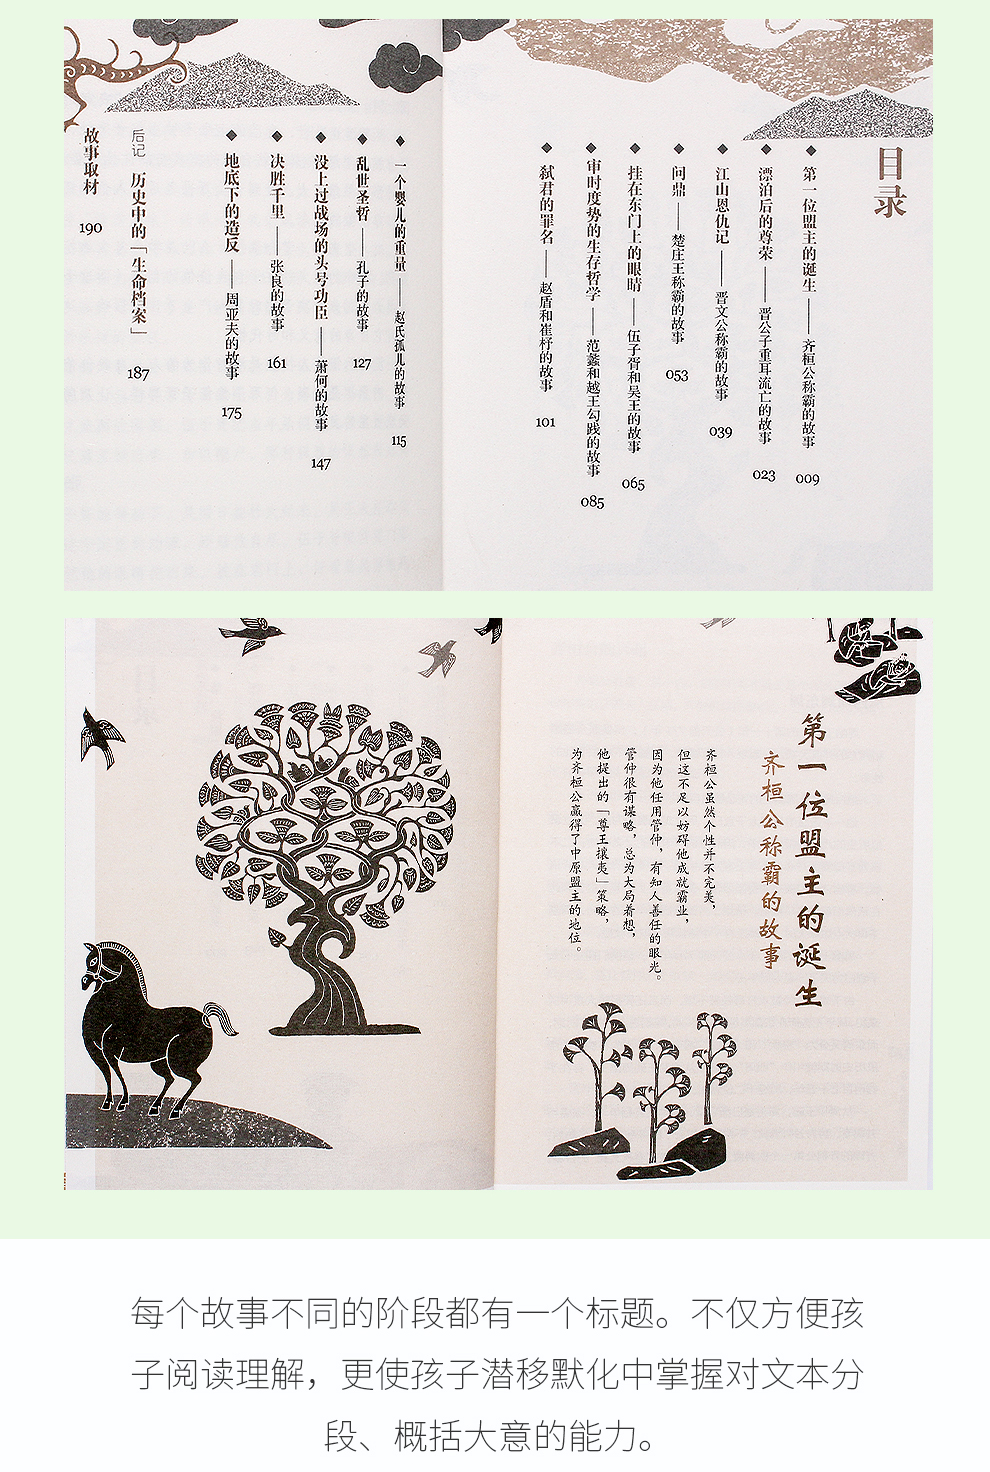 目录
第一位盟主的诞生——齐桓公称霸的故事 009
漂泊后的尊荣——晋公子重耳流亡的故事 023
江山恩仇记——晋文公称霸的故事 039
问鼎——楚庄王称霸的故事 053
挂在东门上的眼睛——伍子胥和吴王的故事 065
审时度势的生存哲学——范蠡和越王勾践的故事 085
弑君的罪名——赵盾和崔杼的故事 101
一个婴儿的重量——赵氏孤儿的故事 115
乱世圣哲——孔子的故事 127
没上过战场的头号功臣——萧何的故事 147
决胜千里——张良的故事 161
地底下的造反——周亚夫的故事 175
后记 历史中的「生命档案」 187
故事取材 190
第一位盟主的诞生
齐桓公称霸的故事
齐桓公虽然个性并不完美，
但这不足以妨碍他成就霸业，
因为他任用管仲，有知人善任的眼光。
管仲很有谋略，总为大局着想，
他提出的「尊王攘夷」策略，
为齐桓公赢得了中原盟主的地位。
每个故事不同的阶段都有一个标题。不仅方便孩
子阅读理解，更使孩子潜移默化中掌握对文本分
段、概括大意的能力。